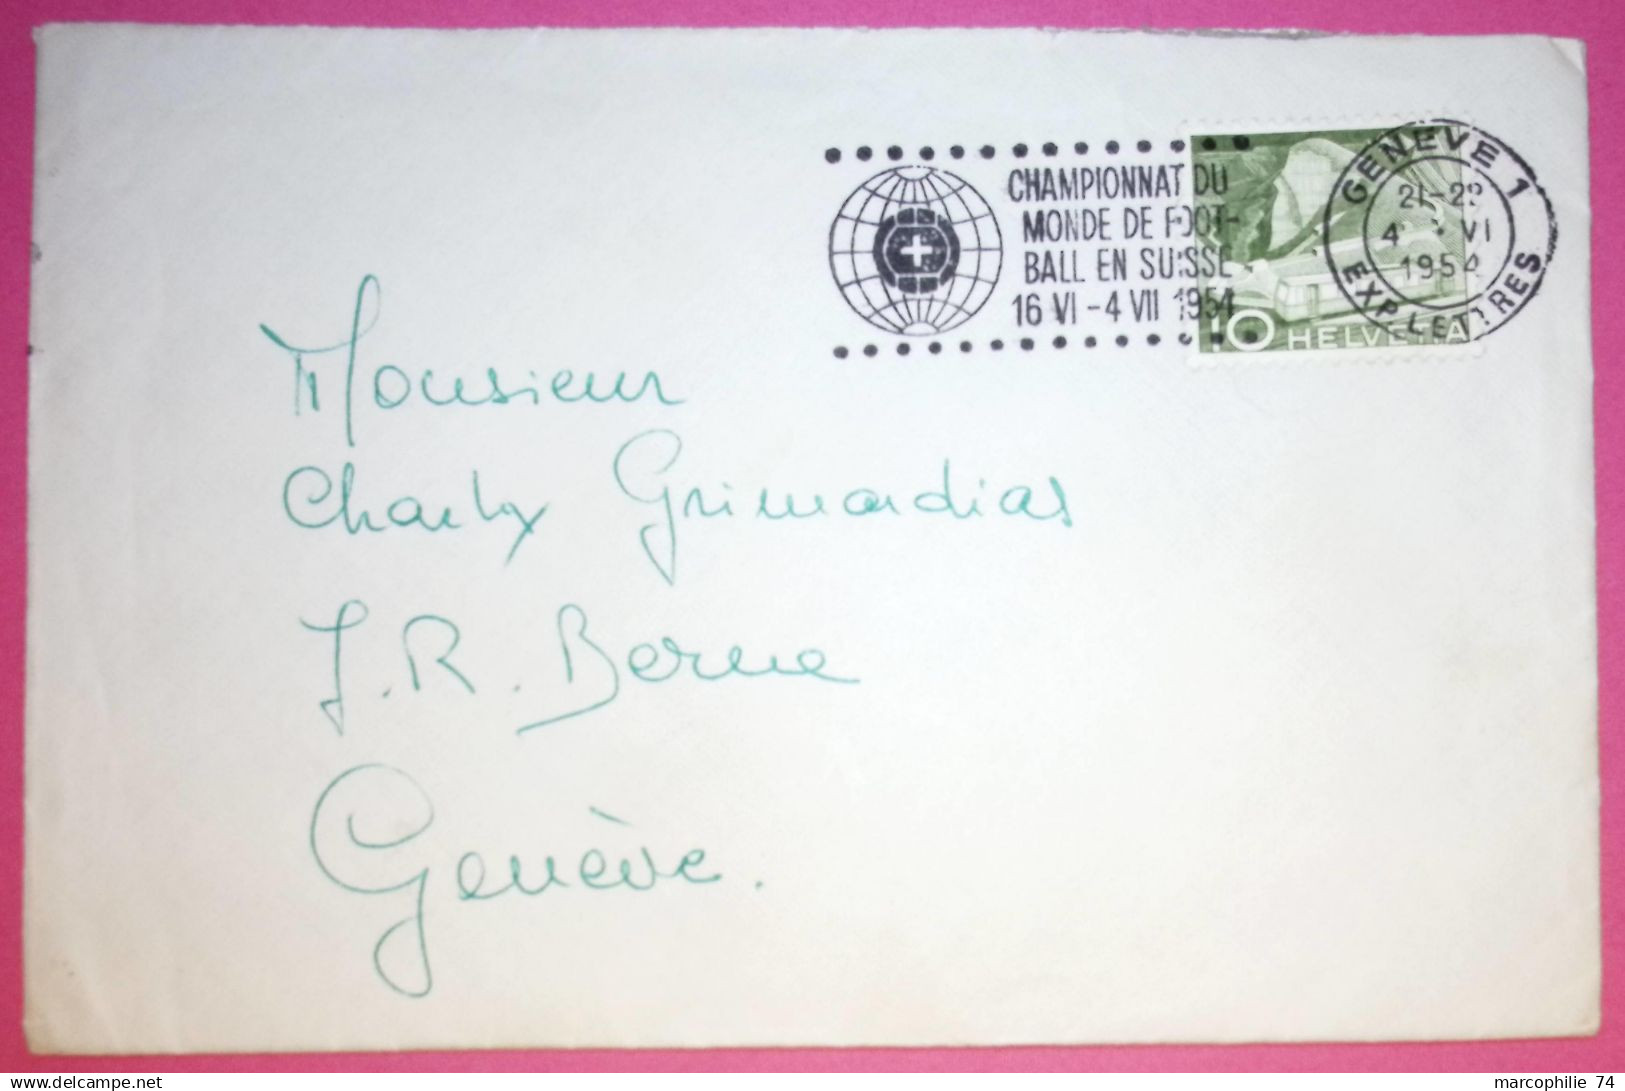 CHAMPIONNAT DU
MONDE DE FOOT-
BALL EN SUISSE
16 VI - 4 VII 1954
GENEVE 1
21-22
4 VI
1954
EXP. LETTRES
10 HELVETIA
Monsieur
Charly Grimardias
J. R. Berne
Genève.
marcophilie 74
www.delcampe.net